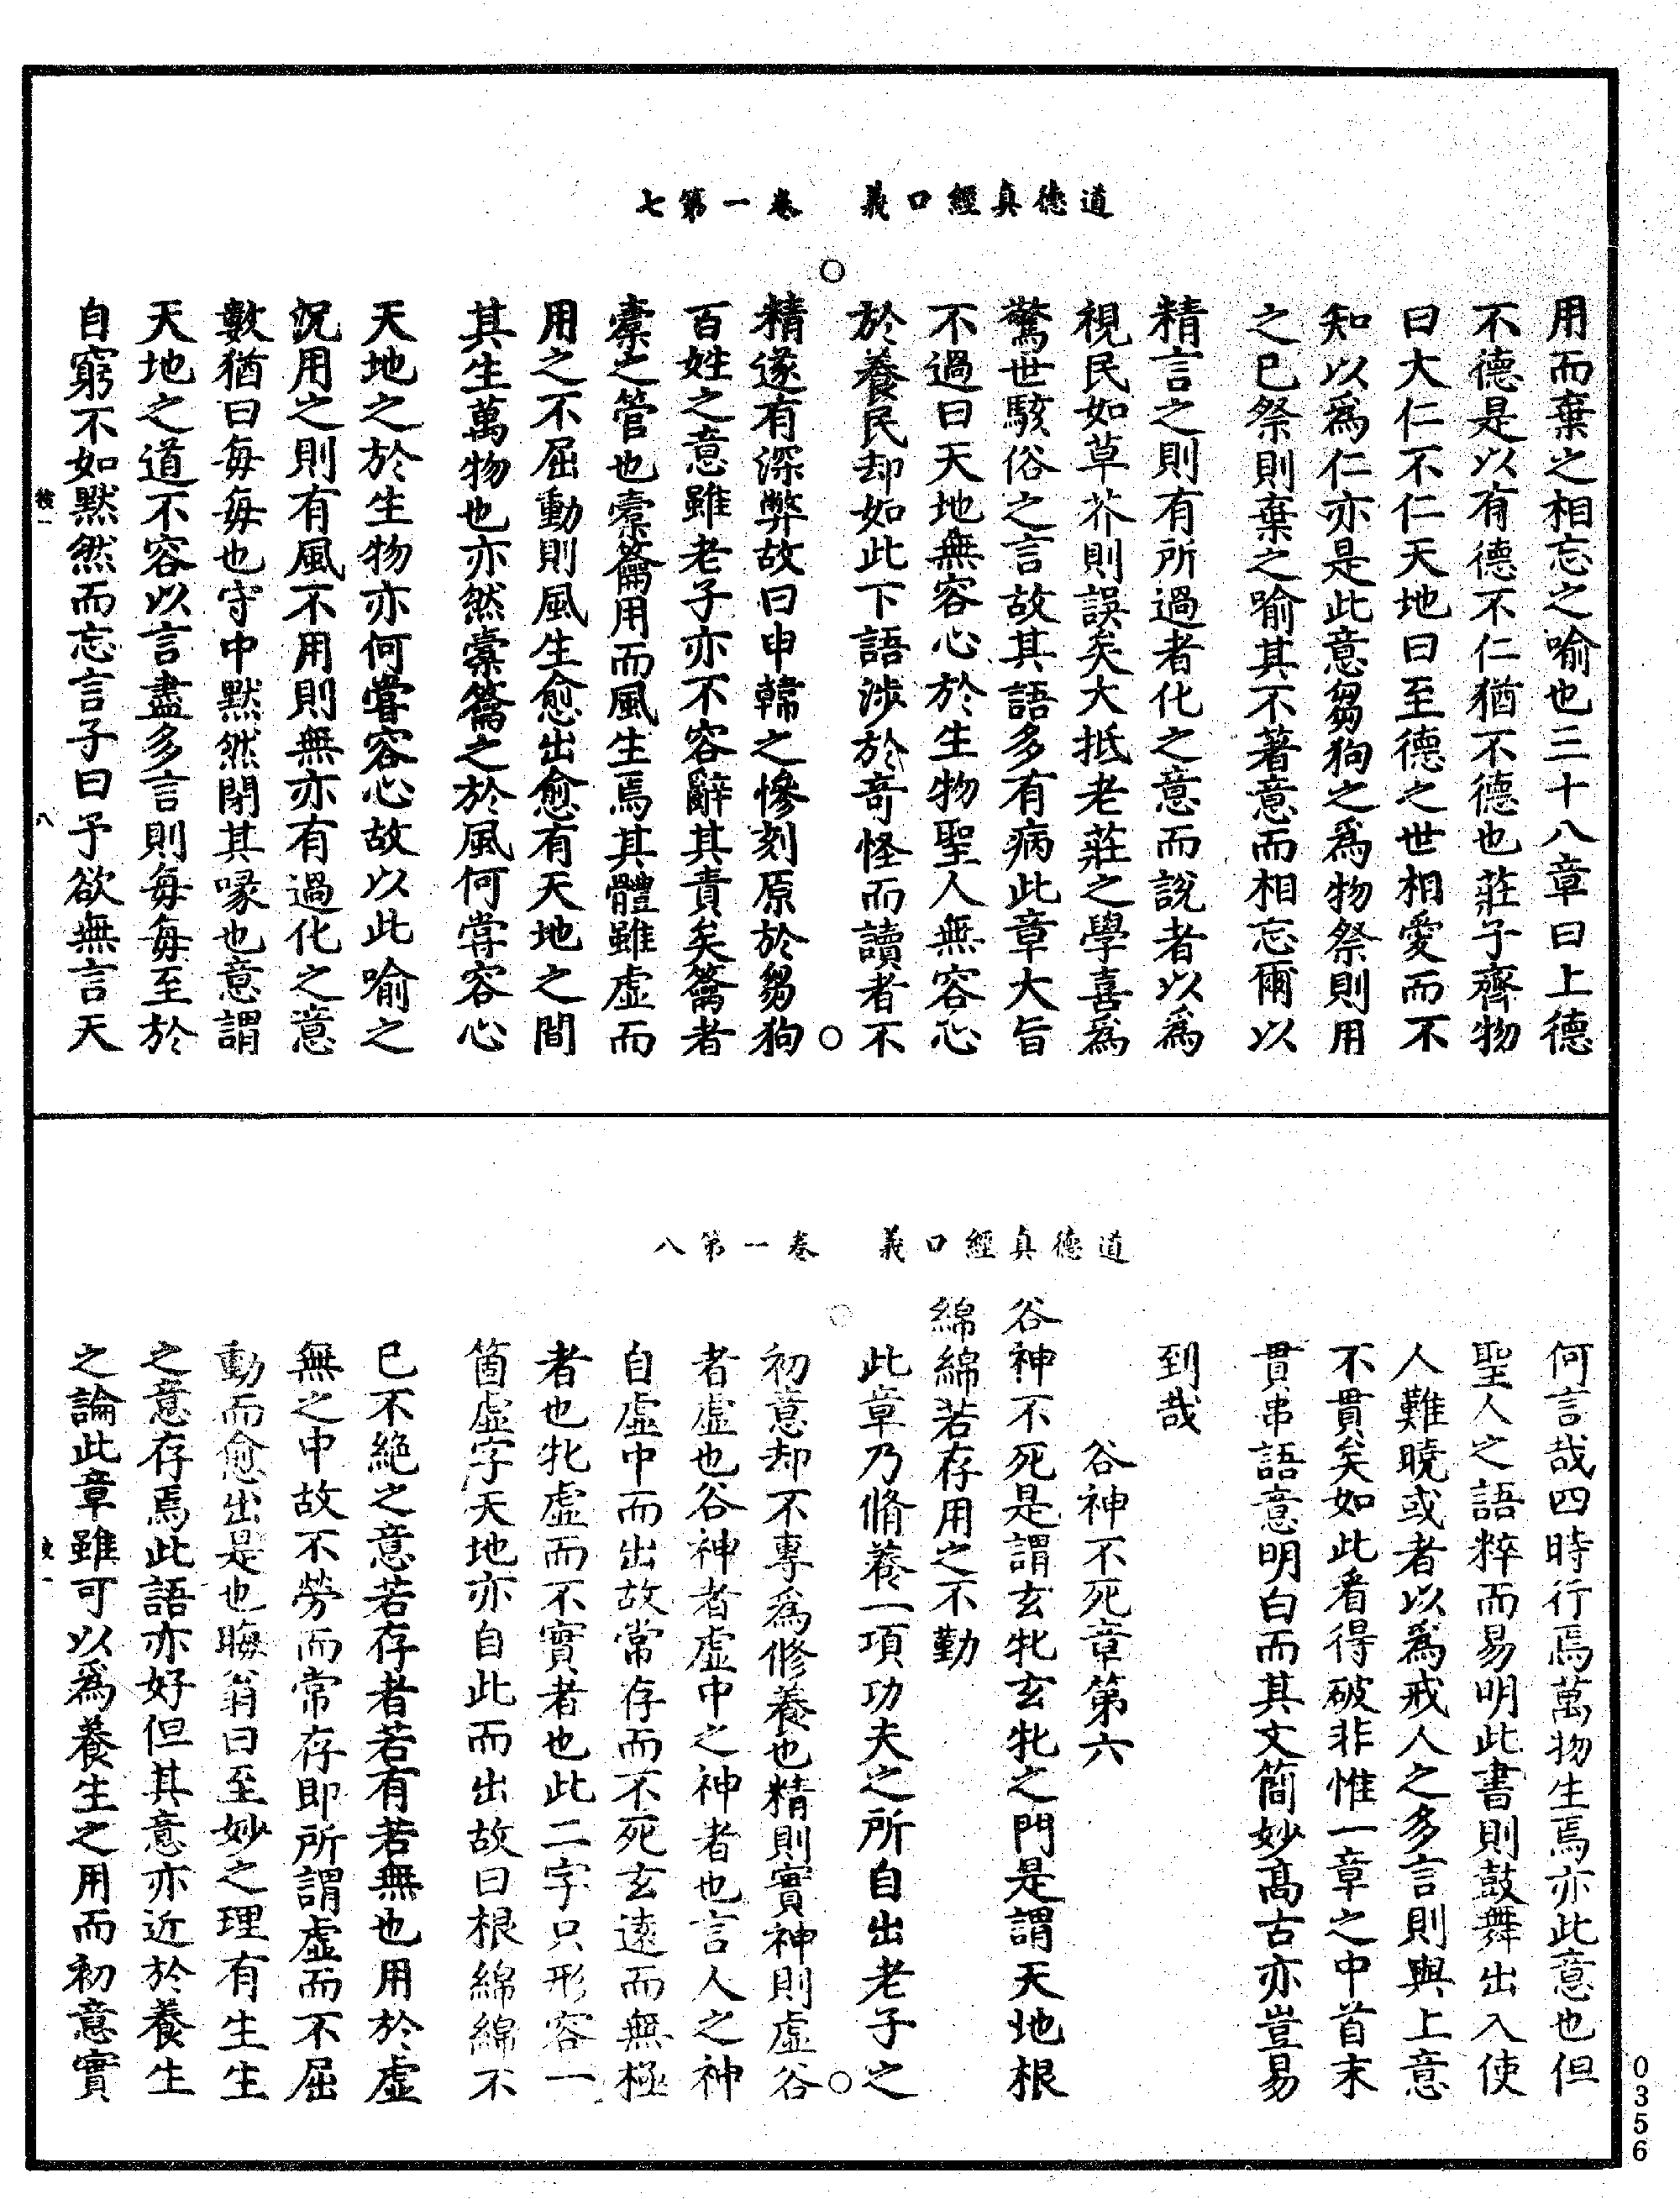 道德真經口義　卷一第七
用而棄之相忘之喻也三十八章曰上德
不德是以有德不仁猶不德也莊子齊物
曰大仁不仁天地曰至德之世相愛而不
知以爲仁亦是此意芻狗之爲物祭則用
之已祭則棄之喻其不著意而相忘爾以
精言之則有所過者化之意而說者以爲
視民如草芥則誤矣大抵老莊之學喜爲
驚世駭俗之言故其語多有病此章大旨
不過曰天地無容心於生物聖人無容心
於養民却如此下語涉於奇怪而讀者不
精遂有深弊故曰申韓之慘刻原於芻狗
百姓之意雖老子亦不容辭其責矣籥者
橐之管也橐籥用而風生焉其體雖虛而
用之不屈動則風生愈出愈有天地之間
其生萬物也亦然橐籥之於風何嘗容心
天地之於生物亦何嘗容心故以此喻之
況用之則有風不用則無亦有過化之意
數猶曰每每也守中默然閉其喙也意謂
天地之道不容以言盡多言則每每至於
自窮不如默然而忘言子曰予欲無言天
八
道德真經口義　卷一第八
何言哉四時行焉萬物生焉亦此意也但
聖人之語粹而易明此書則鼓舞出入使
人難曉或者以爲戒人之多言則與上意
不貫矣如此看得破非惟一章之中首末
貫串語意明白而其文簡妙高古亦豈易
到哉
谷神不死章第六
谷神不死是謂玄牝玄牝之門是謂天地根
綿綿若存用之不勤
此章乃脩養一項功夫之所自出老子之
初意却不專爲修養也精則實神則虛谷
者虛也谷神者虛中之神者也言人之神
自虛中而出故常存而不死玄遠而無極
者也牝虛而不實者也此二字只形容一
箇虛字天地亦自此而出故曰根綿綿不
已不絶之意若存者若有若無也用於虛
無之中故不勞而常存即所謂虛而不屈
動而愈出是也晦翁曰至妙之理有生生
之意存焉此語亦好但其意亦近於養生
之論此章雖可以爲養生之用而初意實
0356